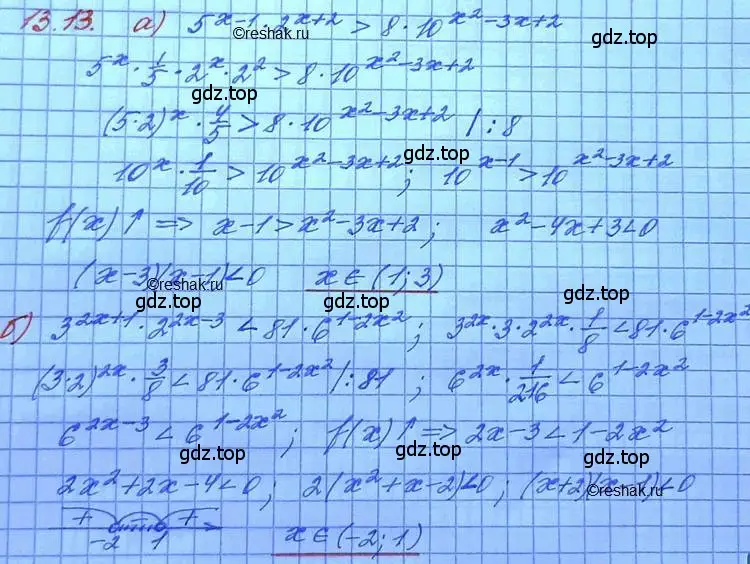 13.13. а) 5^{x-1} · 2^{x+2} > 8 · 10^{x²-3x+2}
©reshak.ru
gdz.top
5^x · 1/5 · 2^x · 2² > 8 · 10^{x²-3x+2}
gdz.top
(5·2)^x · 4/5 > 8 · 10^{x²-3x+2} | : 8
gdz.top
10^x · 1/10 > 10^{x²-3x+2}; 10^{x-1} > 10^{x²-3x+2}
gdz.top
f(x)↑ => x-1 > x²-3x+2; x²-4x+3<0
(x-3)(x-1)<0 x∈(1; 3)
©reshak.ru
gdz.top
gdz.top
б) 3^{2x+1} · 2^{2x-3} < 81 · 6^{1-2x²}; 3^{2x} · 3 · 2^{2x} · 1/8 < 81 · 6^{1-2x²}
(3·2)^{2x} · 3/8 < 81 · 6^{1-2x²} | : 81; 6^{2x} · 1/216 < 6^{1-2x²}
6^{2x-3} < 6^{1-2x²}; f(x)↑ => 2x-3 < 1-2x²
gdz.top
gdz.top
2x²+2x-4<0; 2(x²+x-2)<0; (x+2)(x-1)<0
©reshak.ru
+ +
gdz.top
-2 1 x∈(-2; 1)